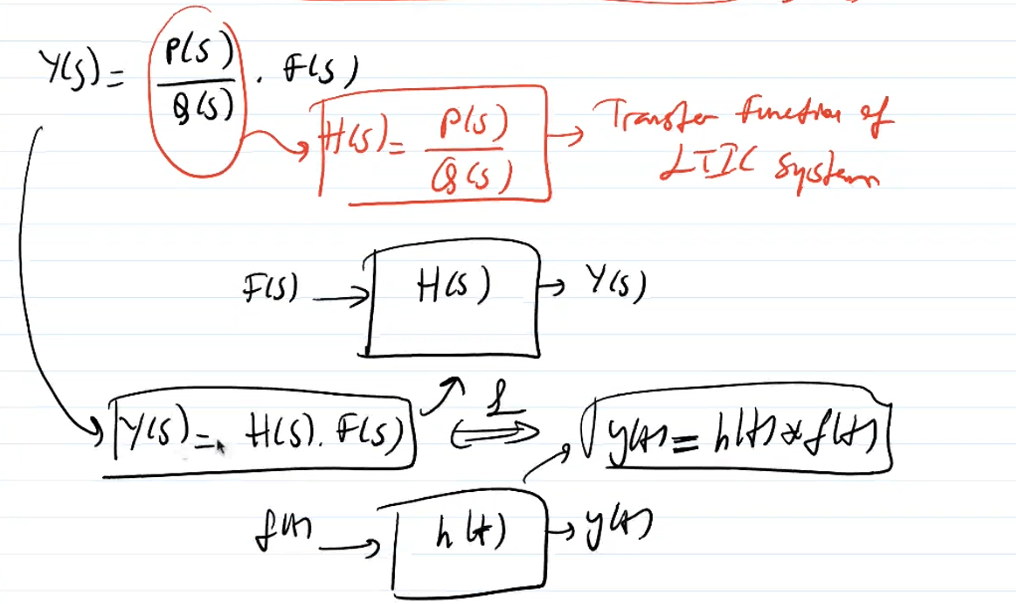 Y(s) = P(s)/Q(s) . F(s)
H(s) = P(s)/Q(s) → Transfer function of
LTIC System
F(s) → H(s) → Y(s)
Y(s) = H(s) . F(s) ⇔ ℒ y(t) = h(t) * f(t)
f(t) → h(t) → y(t)